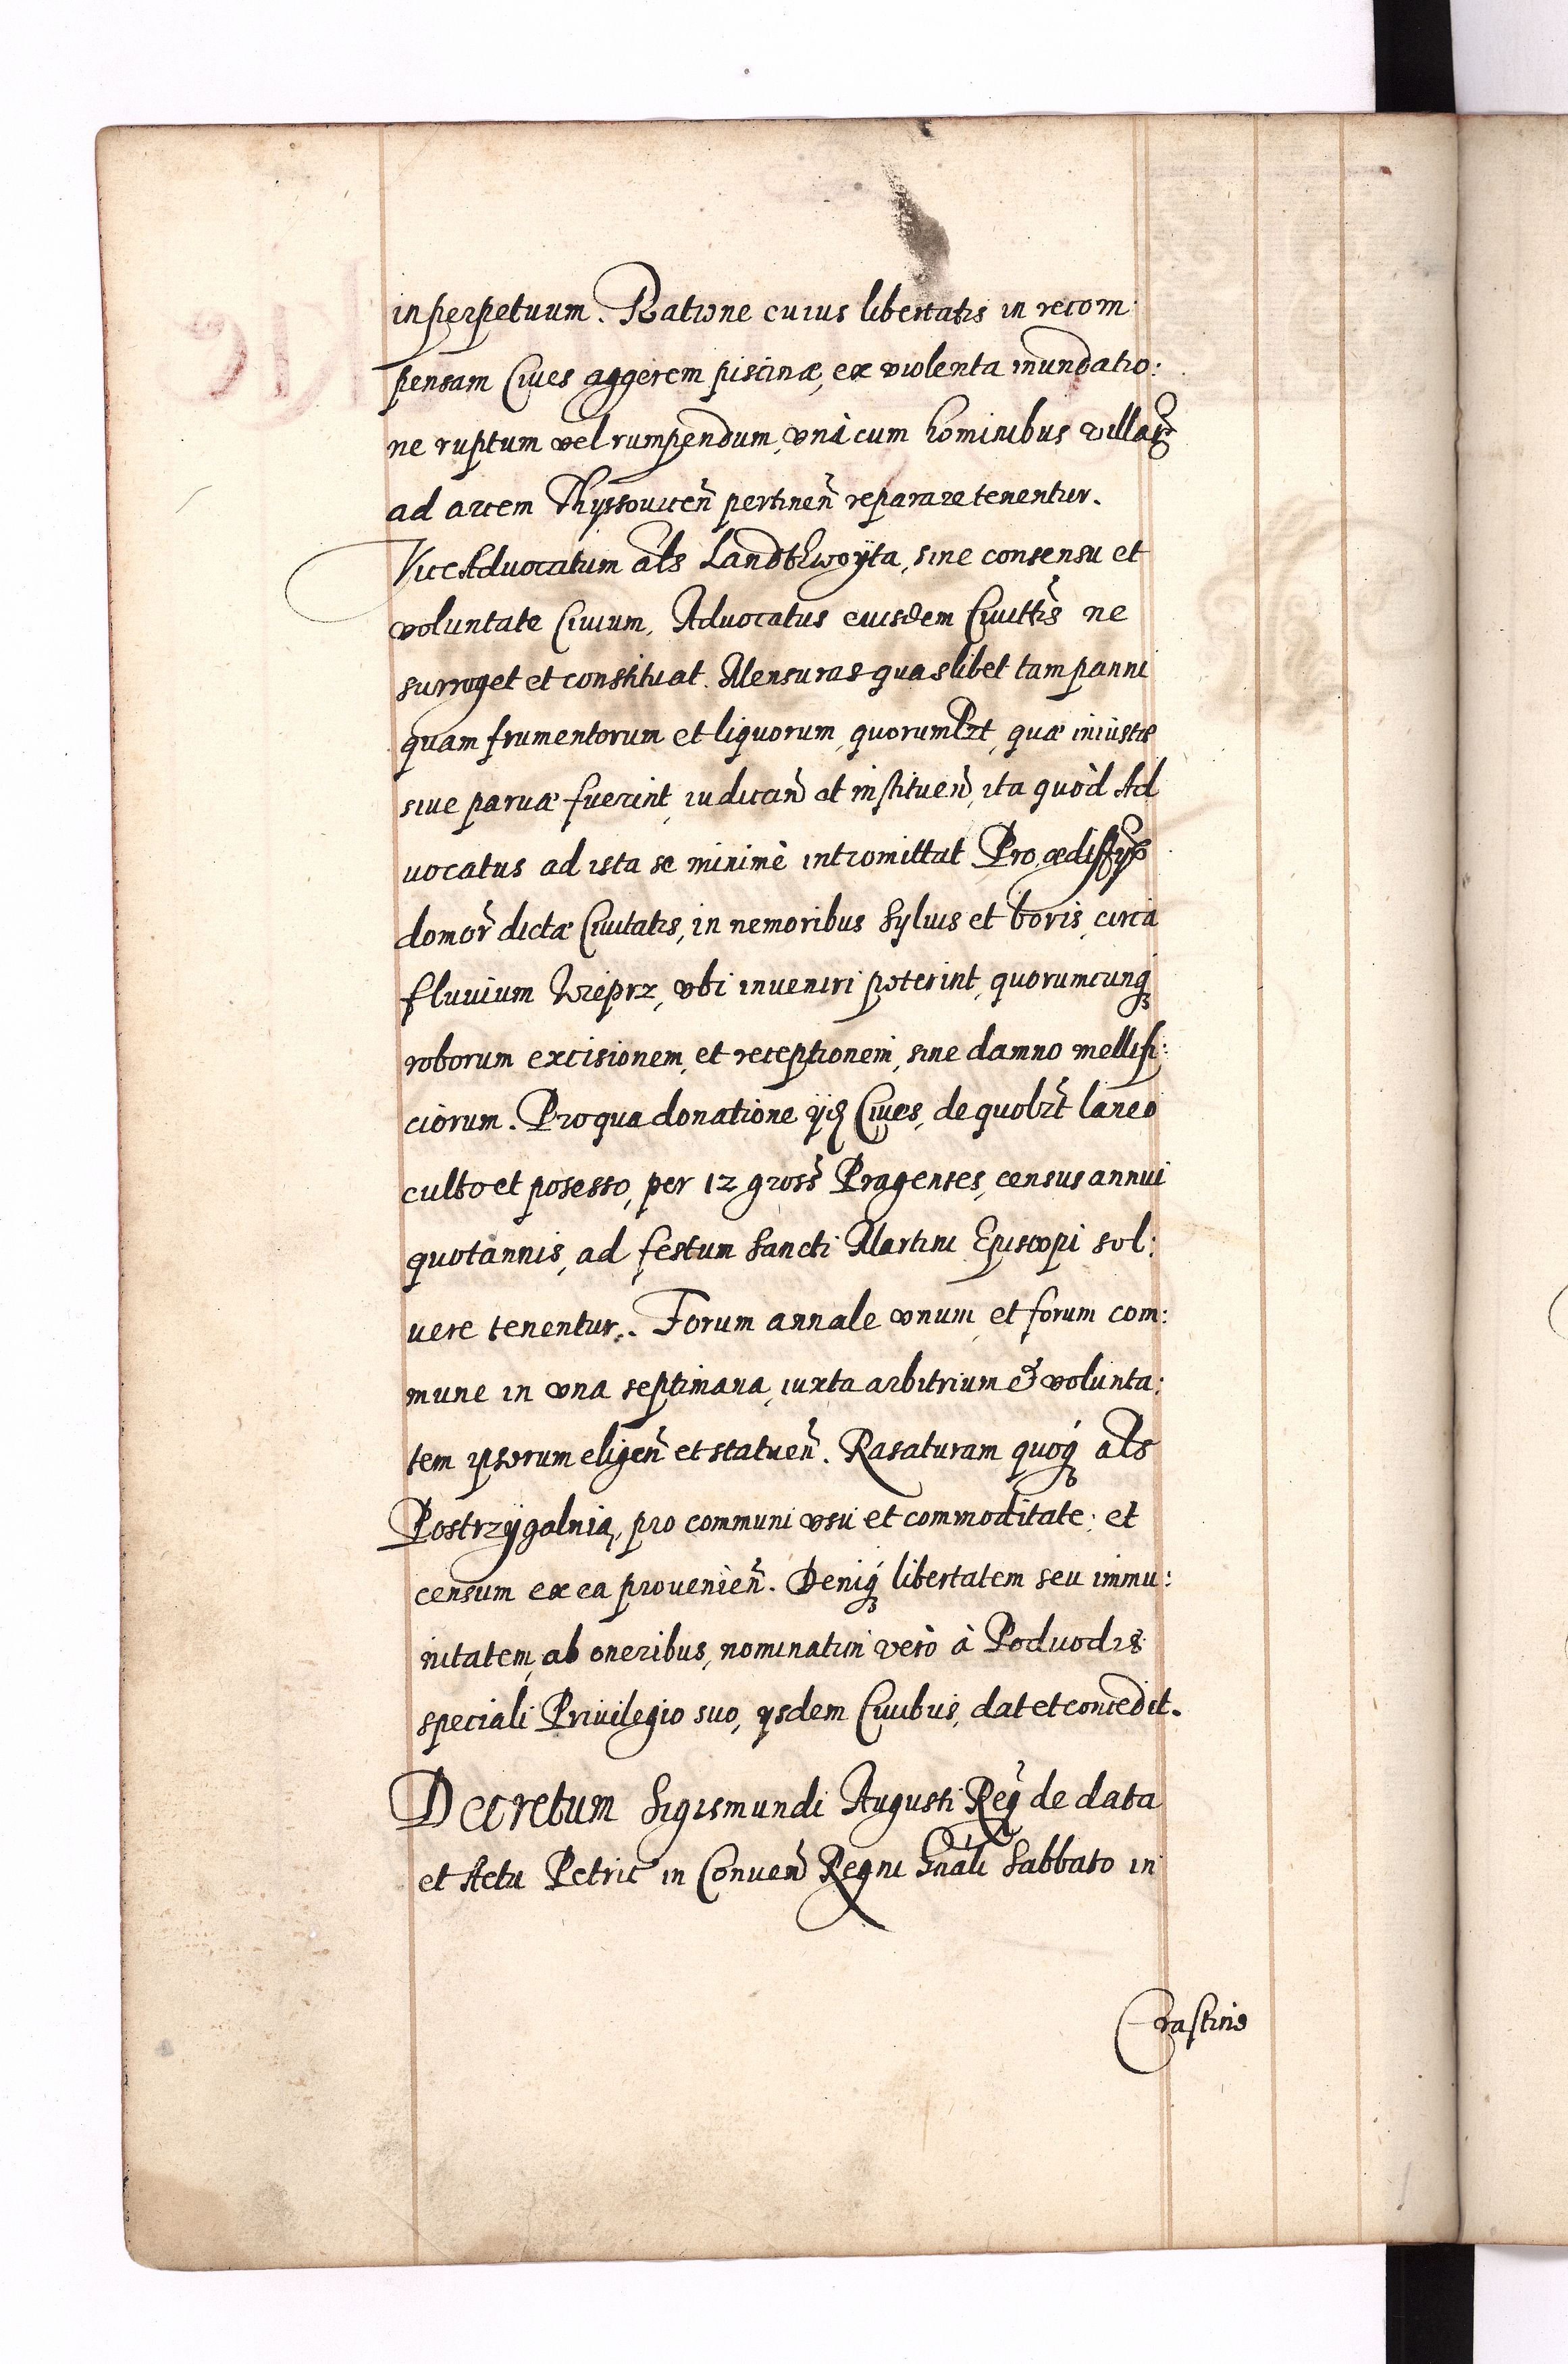 in perpetuum. Ratione cuius libertatis in recom:
pensam Ciues aggerem piscinæ, ex violenta inundatio:
ne ruptum vel rumpendum, vnà cum hominibus villarꝝ
ad arcem Thyssouicen̄ pertinen̄ reparare tenentur.
ViceAduocatum als Landtwoÿta, sine consensu et
voluntate Ciuium, Aduocatus eiusdem Ciuittis ne
surroget et constituat. Mensuras quaslibet tam panni
quam frumentorum et liquorum quorumlzt, quæ iniustæ
siue paruæ fuerint, iudican̄ et instituen̄, ita quòd Ad
uocatus ad ista se minimè intromittat Pro ædiffÿs
domor̄ dictæ Ciuitatis, in nemoribus Syluis et boris circa
fluuium Wieprz, vbi inueniri poterint, quorumcunqꝫ
roborum excisionem, et receptionem, sine damno mellifi:
ciorum. Pro qua donatione ÿd Ciues, de quolzt laneo
culto et posesso, per 12 gross Pragenses, census annui
quotannis, ad festum Sancti Martini Episcopi sol:
uere tenentur. Forum annale vnum et forum com:
mune in vna septimana, iuxta arbitrium & volunta:
tem ipsorum eligen̄ et statuen̄. Rasaturam quoqꝫ als
Postrzÿgalnią, pro communi vsu et commoditate; et
censum ex ea prouenien̄. Deniqꝫ libertatem seu immu:
nitatem, ab oneribus, nominatim verò à Poduodis
speciali Priuilegio suo, ÿsdem Ciuibus, dat et concedit.
Decretum Sigismundi Augusti Reg de data
et Actu Petric in Conuen̄ Regni Gnāli Sabbato in
Crastino